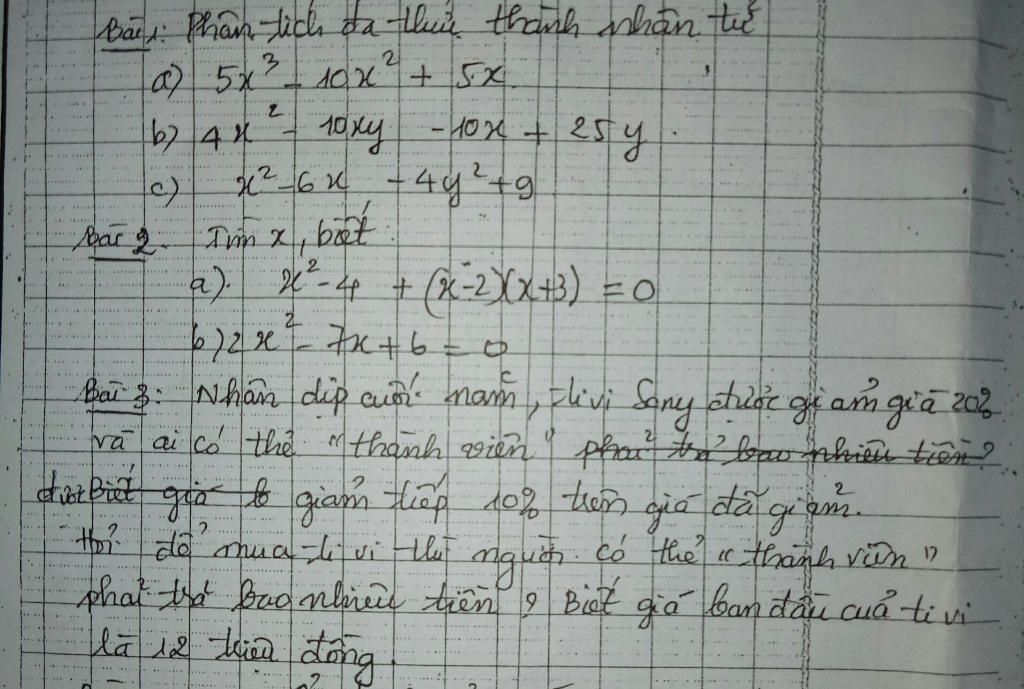 Bài 1: Phân tích đa thức thành nhân tử
a) 5x³ - 10x² + 5x
b) 4x² - 10xy - 10x + 25y.
c) x² - 6x - 4y² + 9
Bài 2. Tìm x, biết:
a). x² - 4 + (x-2)(x+3) = 0
b) 2x² - 7x + 6 = 0
Bài 3: Nhân dịp cuối năm, tivi Sony được giảm giá 20%
và ai có thẻ "thành viên" phải trả bao nhiêu tiền?
được Biết giá b giảm tiếp 10% trên giá đã giảm.
Hỏi để mua ti vi thì người có thẻ "thành viên"
phải trả bao nhiêu tiền? Biết giá ban đầu của ti vi
là 12 triệu đồng.